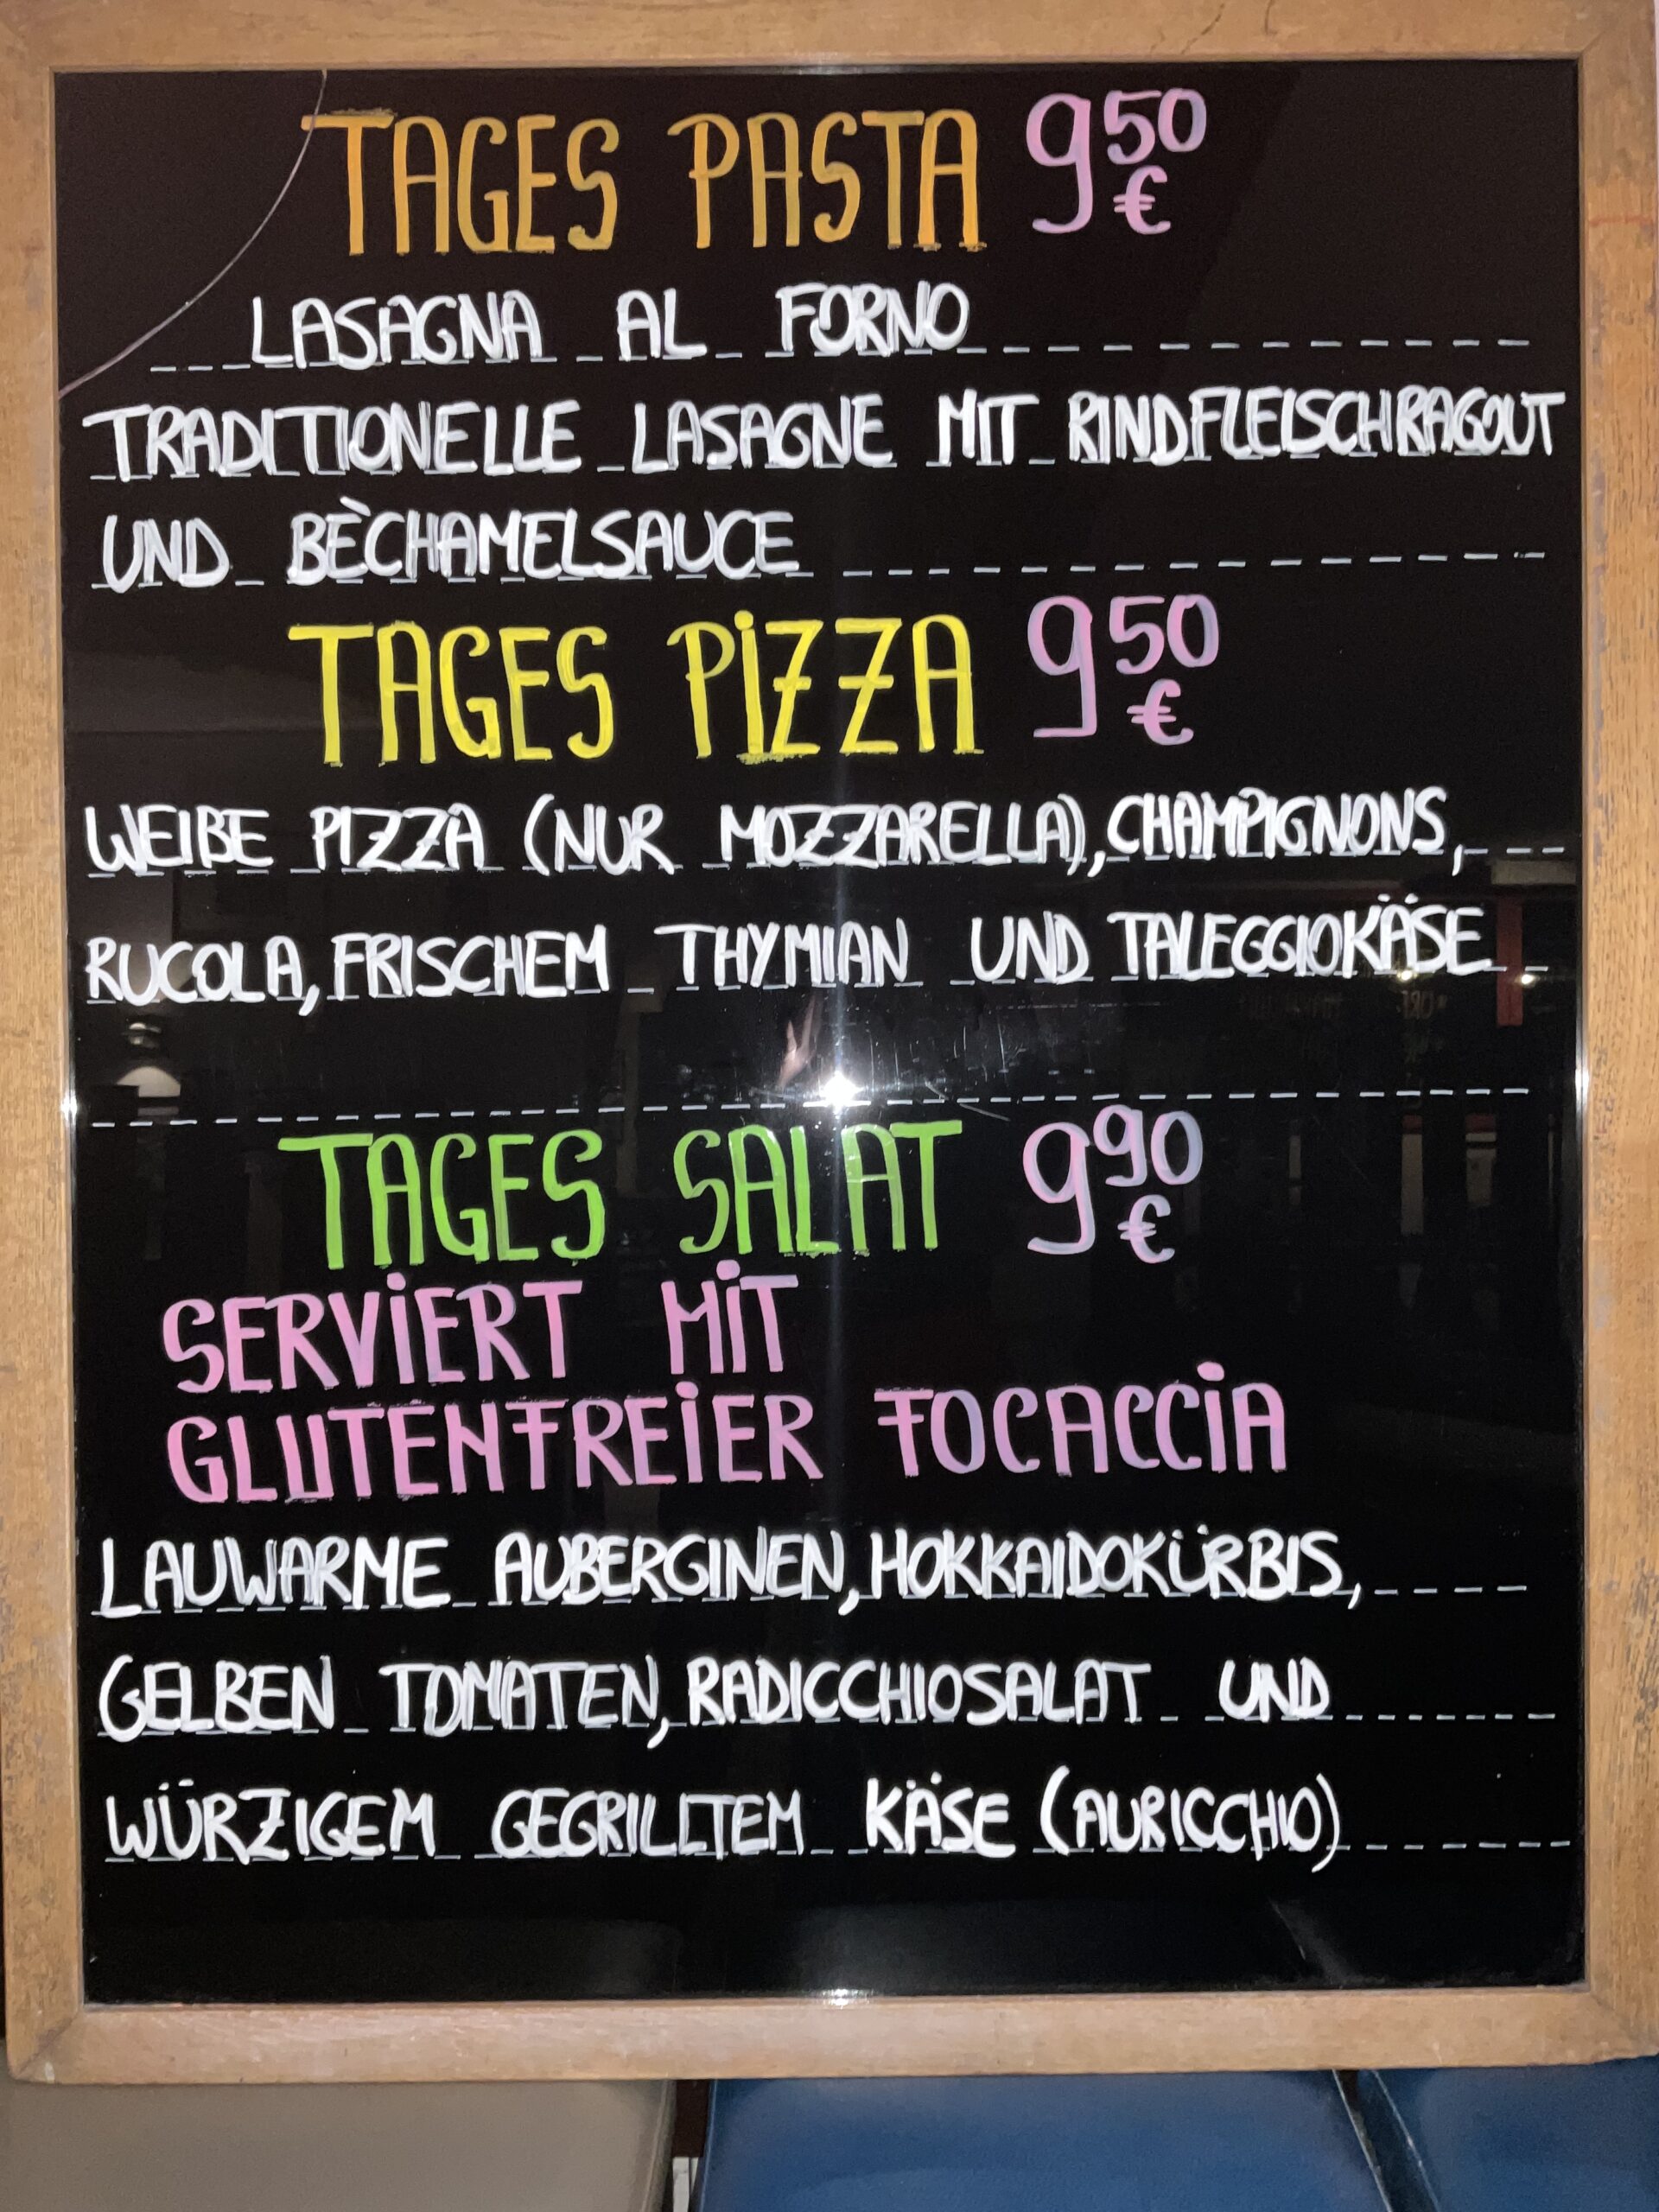 TAGES PASTA 9 50 €
LASAGNA AL FORNO
TRADITIONELLE LASAGNE MIT RINDFLEISCHRAGOUT
UND BÈCHAMELSAUCE
TAGES PiZZA 9 50 €
WEIßE PIZZA (NUR MOZZARELLA), CHAMPIGNONS,
RUCOLA, FRISCHEM THYMIAN UND TALEGGIOKÄSE
TAGES SALAT 9 90 €
SERViERT MiT
GLUTENFREiER FOCACCiA
LAUWARME AUBERGINEN, HOKKAIDOKÜRBIS,
GELBEN TOMATEN, RADICCHIOSALAT UND
WÜRZIGEM GEGRILLTEM KÄSE (AURICCHIO)